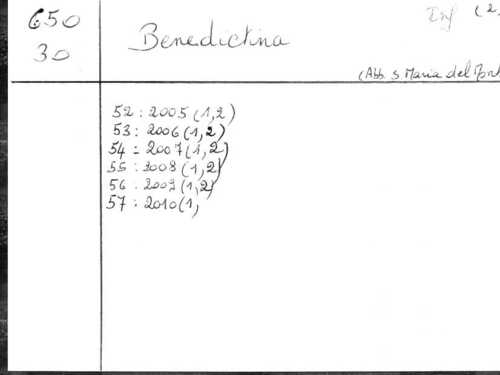 650
30
Benedictina
Inf (2,
(Abb. S. Maria del Mont
52 : 2005 (1,2)
53 : 2006 (1,2)
54 : 2007 (1,2)
55 : 2008 (1,2)
56 : 2009 (1,2)
57 : 2010 (1,